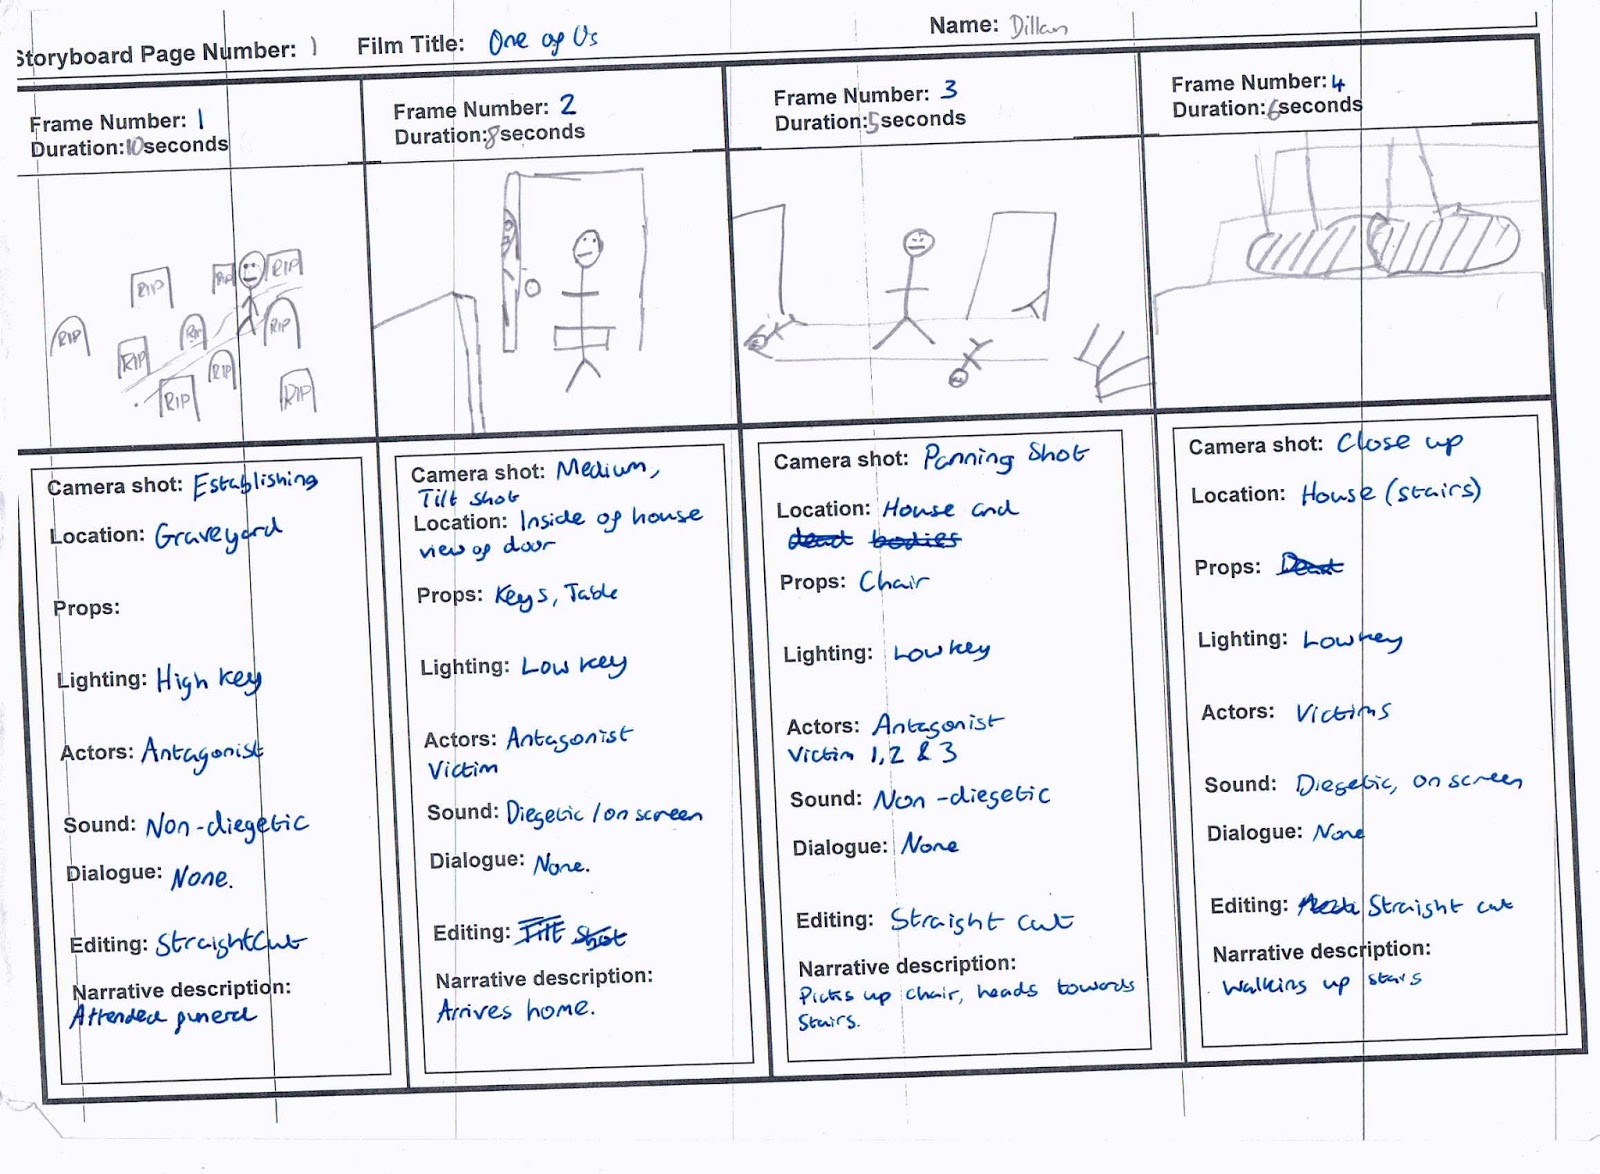 Storyboard Page Number: 1 Film Title: One of Us Name: Dillan
Frame Number: 1
Duration:10seconds
RIP
RIP
RIP
RIP
RIP
RIP
RIP
RIP
RIP
RIP
Camera shot: Establishing
Location: Graveyard
Props:
Lighting: High key
Actors: Antagonist
Sound: Non-diegetic
Dialogue: None.
Editing: Straight Cut
Narrative description:
Attended funeral
Frame Number: 2
Duration:8seconds
Camera shot: Medium,
Tilt shot
Location: Inside of house
view of door
Props: Keys, Table
Lighting: Low key
Actors: Antagonist
Victim
Sound: Diegetic / on screen
Dialogue: None.
Editing: Tilt Shot
Narrative description:
Arrives home.
Frame Number: 3
Duration:5seconds
Camera shot: Panning Shot
Location: House and
dead bodies
Props: Chair
Lighting: Low key
Actors: Antagonist
Victim 1, 2 & 3
Sound: Non-diegetic
Dialogue: None
Editing: Straight cut
Narrative description:
Picks up chair, heads towards
stairs.
Frame Number: 4
Duration:6seconds
Camera shot: Close up
Location: House (stairs)
Props: Dead
Lighting: Low key
Actors: Victims
Sound: Diegetic, on screen
Dialogue: None
Editing: Straight cut
Narrative description:
Walking up stairs